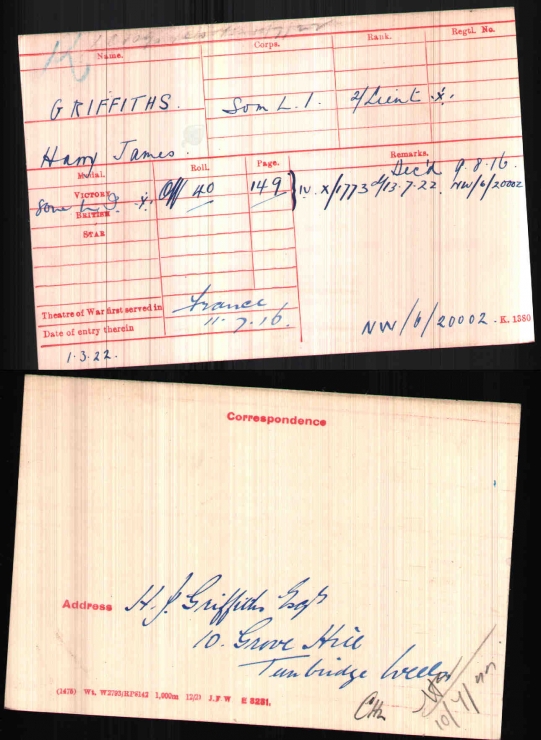 K
Name. Corps. Rank. Regtl. No.
GRIFFITHS. Som L. I. 2/Lieut .X.
Harry James.
Medal. Roll. Page. Remarks.
Dec'd 9.8.16.
VICTORY Off 40 149 } IV. X/1773 d/13.7.22. NW/6/20002
Som L I .X.
BRITISH
STAR
Theatre of War first served in France
Date of entry therein 11.7.16.
NW/6/20002. K. 1380
1.3.22.
Correspondence
Address H. J. Griffiths Esqr
10. Grove Hill
Tunbridge Wells
Wt. 1,000m J.F W E 8251.
10/4/22